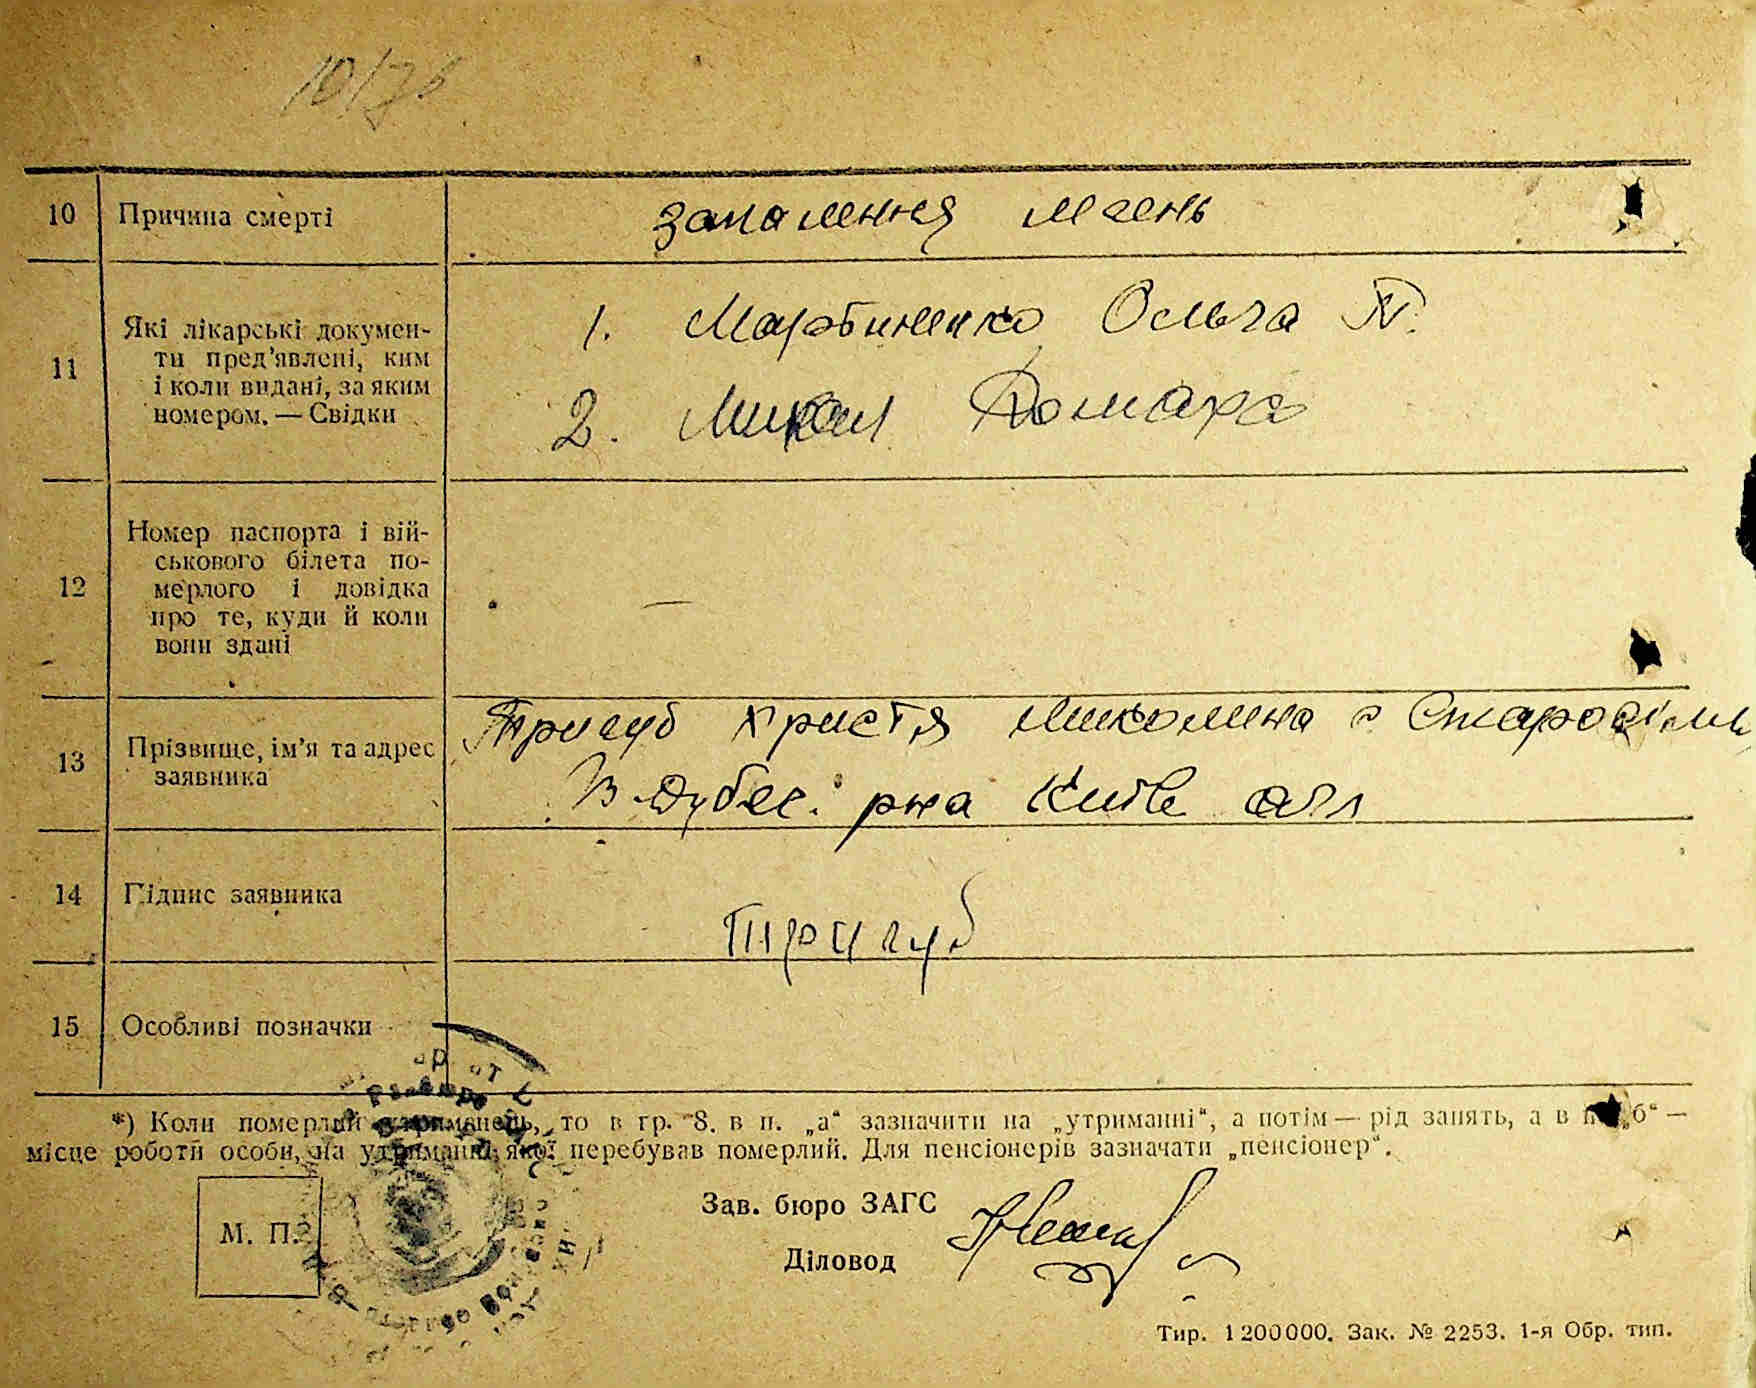 10/76
10 Причина смерті запалення легень
11 Які лікарські докумен-
ти пред'явлені, ким
і коли видані, за яким
номером. — Свідки
1. Мартиненко Ольга
2.
12 Номер паспорта і вій-
ськового білета по-
мерлого і довідка
про те, куди й коли
вони здані
—
13 Прізвище, ім'я та адрес
заявника
Тригуб Христя Миколина с
рна Київ обл
14 Підпис заявника Тригуб
15 Особливі позначки
*) Коли померлий утриманець, то в гр. 8. в п. „а“ зазначити на „утриманні“, а потім — рід занять, а в п. „б“ —
місце роботи особи, на утриманні якої перебував померлий. Для пенсіонерів зазначати „пенсіонер“.
М. П.
Зав. бюро ЗАГС
Діловод
Тир. 1200000. Зак. № 2253. 1-я Обр. тип.